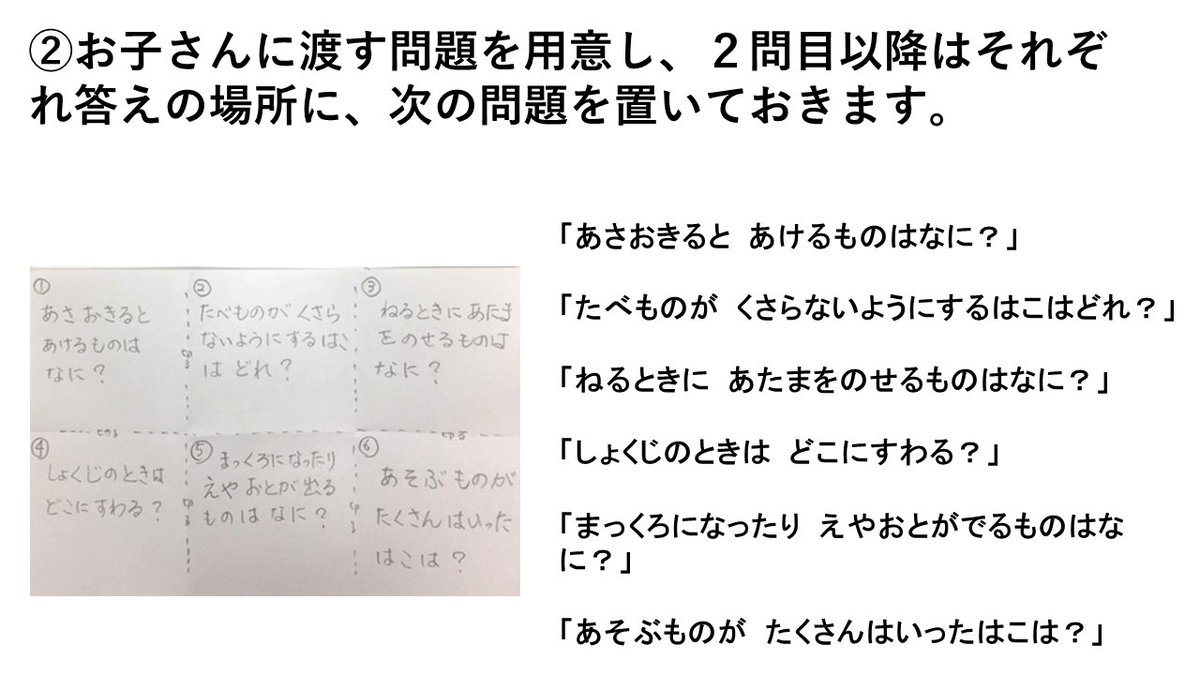 ②お子さんに渡す問題を用意し、２問目以降はそれぞ
れ答えの場所に、次の問題を置いておきます。
「あさおきると あけるものはなに？」
「たべものが くさらないようにするはこはどれ？」
「ねるときに あたまをのせるものはなに？」
「しょくじのときは どこにすわる？」
「まっくろになったり えやおとがでるものはな
に？」
「あそぶものが たくさんはいったはこは？」
①
あさ おきると
あけるものは
なに？
②
たべものが くさら
ないようにするはこ
は どれ？
③
ねるときに あたま
をのせるものは
なに？
④
しょくじのときは
どこにすわる？
⑤
まっくろになったり
えや おとが出る
ものは なに？
⑥
あそぶものが
たくさんはいった
はこは？
きる
きる
きる
きる
きる